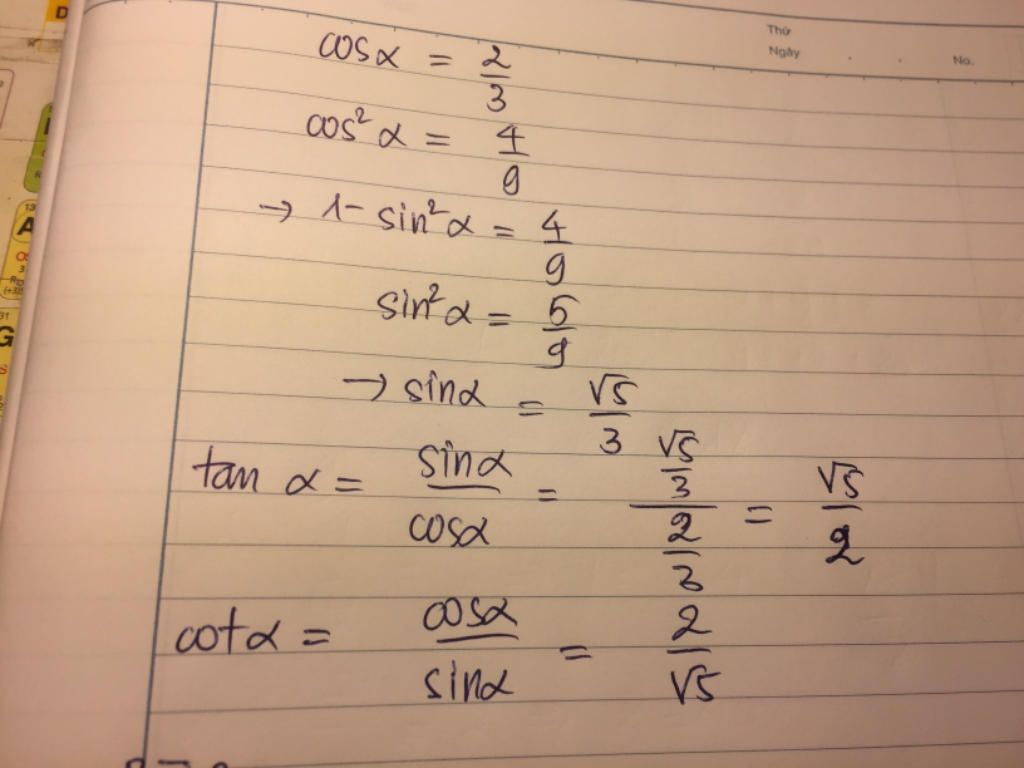 Thứ
Ngày
No.
cosα = 2/3
cos²α = 4/9
→ 1 - sin²α = 4/9
sin²α = 5/9
→ sinα = √5/3
tan α = sinα/cosα = (√5/3)/(2/3) = √5/2
cotα = cosα/sinα = 2/√5